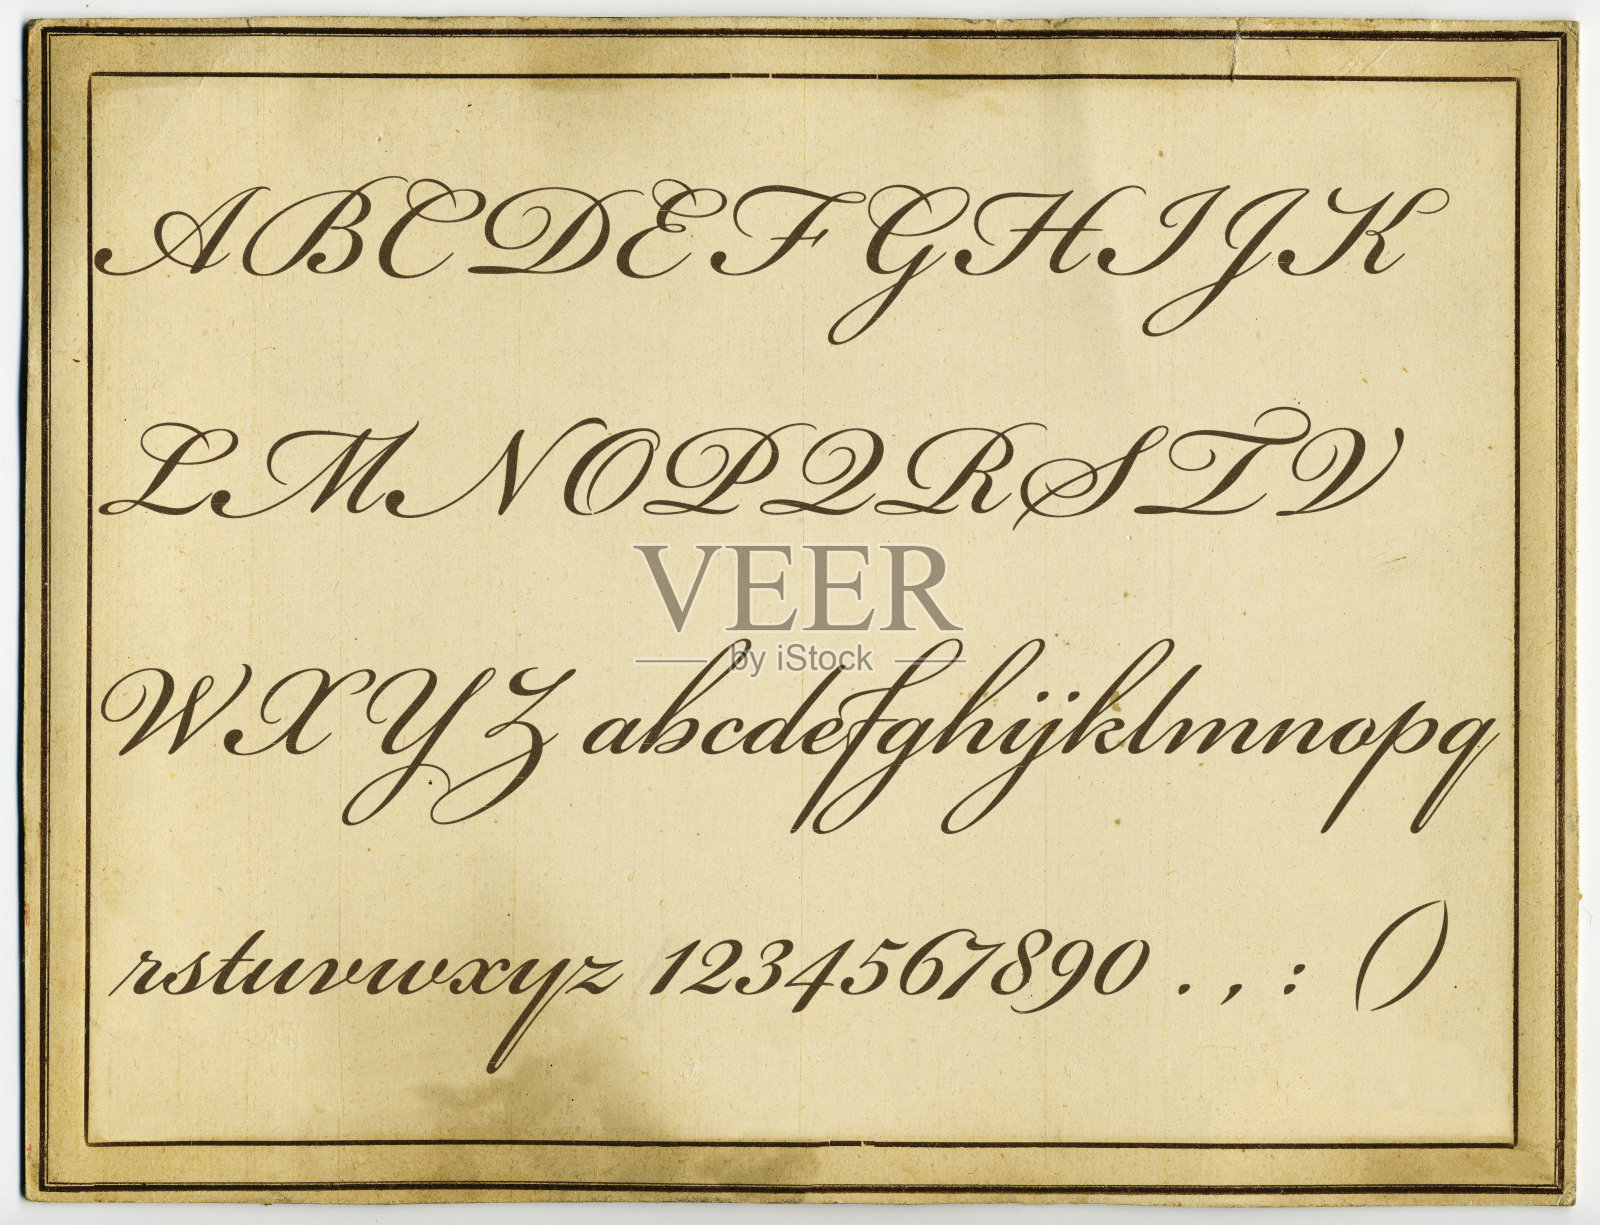 A B C D E F G H I J K
L M N O P Q R S T V
VEER
by iStock
W X Y Z abcdefghijklmnopq
rstuvwxyz 1234567890 . , : ()